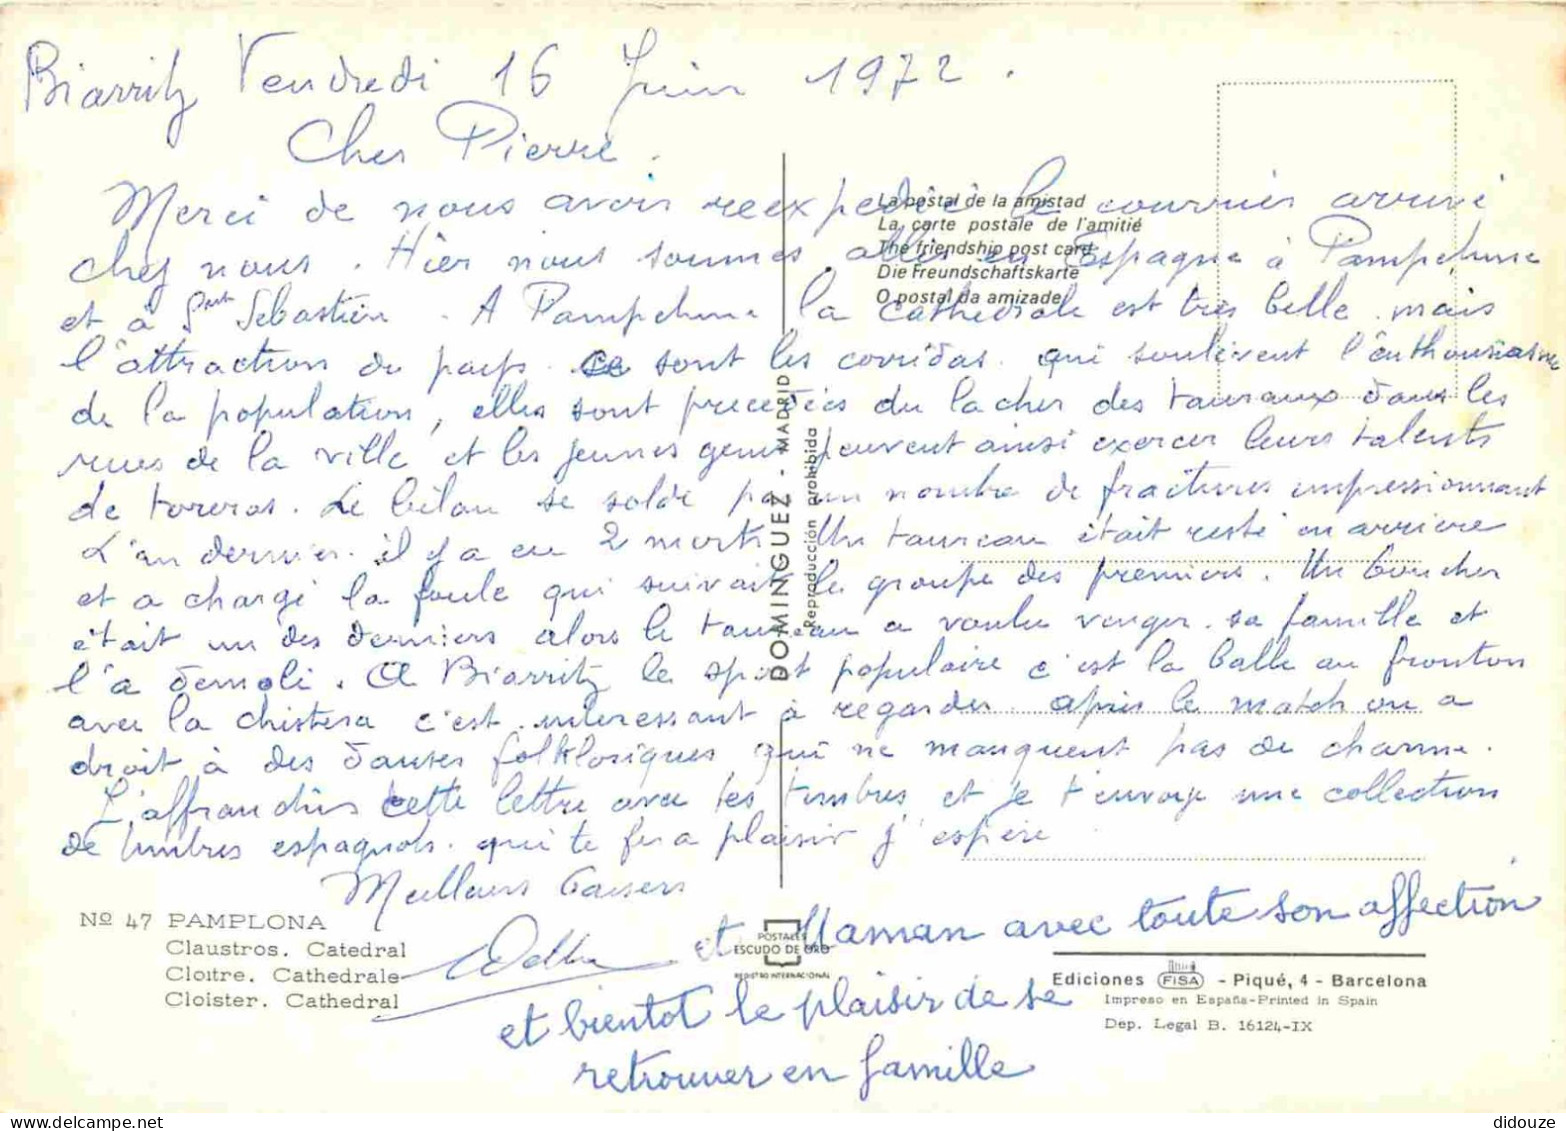 Biarritz Vendredi 16 Juin 1972.
Cher Pierre.
Merci de nous avoir reexpedié le courrier arrivé
chez nous. Hier nous sommes allés en Espagne à Pampelune
et à St Sébastien. A Pampelune la cathédrale est très belle. mais
l'attraction du pays ce sont les corridas. qui soulèvent l'enthousiasme
de la population, elles sont precedées du lacher des taureaux dans les
rues de la ville et les jeunes gens peuvent ainsi exercer leurs talents
de toreros. Le bilan se solde par un nombre de fractures impressionnant
L'an dernier. il y a eu 2 morts Un taureau était resté en arriere
et a chargé la foule qui suivait le groupe des premiers. Un boucher
était un des derniers alors le taureau a voulu venger sa famille et
l'a demoli. A Biarritz le sport populaire c'est la balle au fronton
avec la chistera c'est interessant à regarder. après le match on a
droit à des danses folkloriques qui ne manquent pas de charme.
L'affranchis cette lettre avec tes timbres et je t'envoye une collection
de timbres espagnols. qui te fera plaisir j'espère
Meilleurs baisers
et Maman avec toute son affection
et bientot le plaisir de se
retrouver en famille
La postal de la amistad
La carte postale de l'amitié
The friendship post card
Die Freundschaftskarte
O postal da amizade
DOMINGUEZ - MADRID
Reproducción prohibida
Nº 47 PAMPLONA
Claustros. Catedral
Cloitre. Cathedrale
Cloister. Cathedral
POSTALES
ESCUDO DE ORO
REGISTRO INTERNACIONAL
Ediciones FISA - Piqué, 4 - Barcelona
Impreso en España-Printed in Spain
Dep. Legal B. 16124-IX
didouze